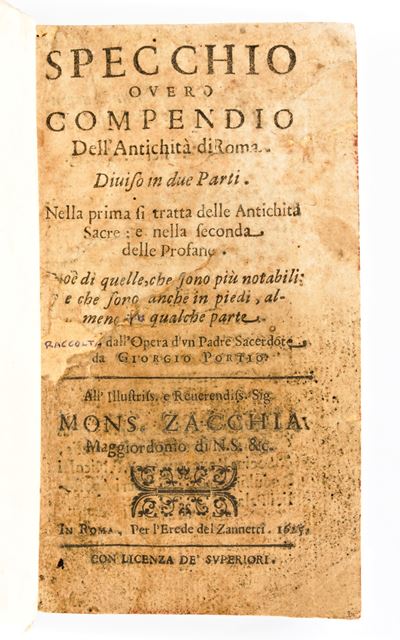 SPECCHIO
OVERO
COMPENDIO
Dell'Antichità di Roma.
Diuiso in due Parti.
Nella prima si tratta delle Antichità
Sacre: e nella seconda
delle Profane.
di quelle, che sono più notabili;
e che sono anche in piedi, al-
meno qualche parte.
RACCOLTA dall'Opera d'vn Padre Sacerdote
da GIORGIO PORTIO.
All' Illustriss. e Reuerendiss. Sig.
MONS. ZACCHIA
Maggiordomo di N.S. &c.
IN ROMA, Per l'Erede del Zannetti. 1625.
CON LICENZA DE' SVPERIORI.